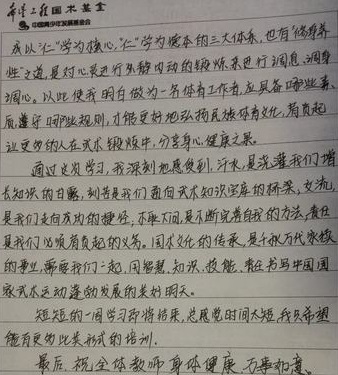 希望工程国术基金
中国青少年发展基金会
或以"仁"学为核心,"仁"学为根本的三大体系,也有"修身养
性"之道,是对心灵进行外静内动的锻炼,来进行调息、调身
调心。以此使我明白做为一名体育工作者,应具备哪些素
质遵守哪些规则,才能更好地弘扬民族体育文化,肩负起
让更多的人在武术锻炼中,分享身心健康之果。
通过这次学习,我深刻地感受到,汗水,是浇灌我们增
长知识的甘露,刻苦是我们通向武术知识宝库的桥梁,交流,
是我们走向成功的捷径,不耻下问,是不断完善自我的方法,责任
是我们必须肩负起的义务。国术文化的传承,是千秋万代家族
的事业,需要我们一起,用智慧、知识、技能、责任书写中国国
家武术运动蓬勃发展的美好明天。
短短的一周学习即将结束,总感觉时间太短,我只希望
能有更多此类形式的培训。
最后,祝全体教师身体健康、万事如意。